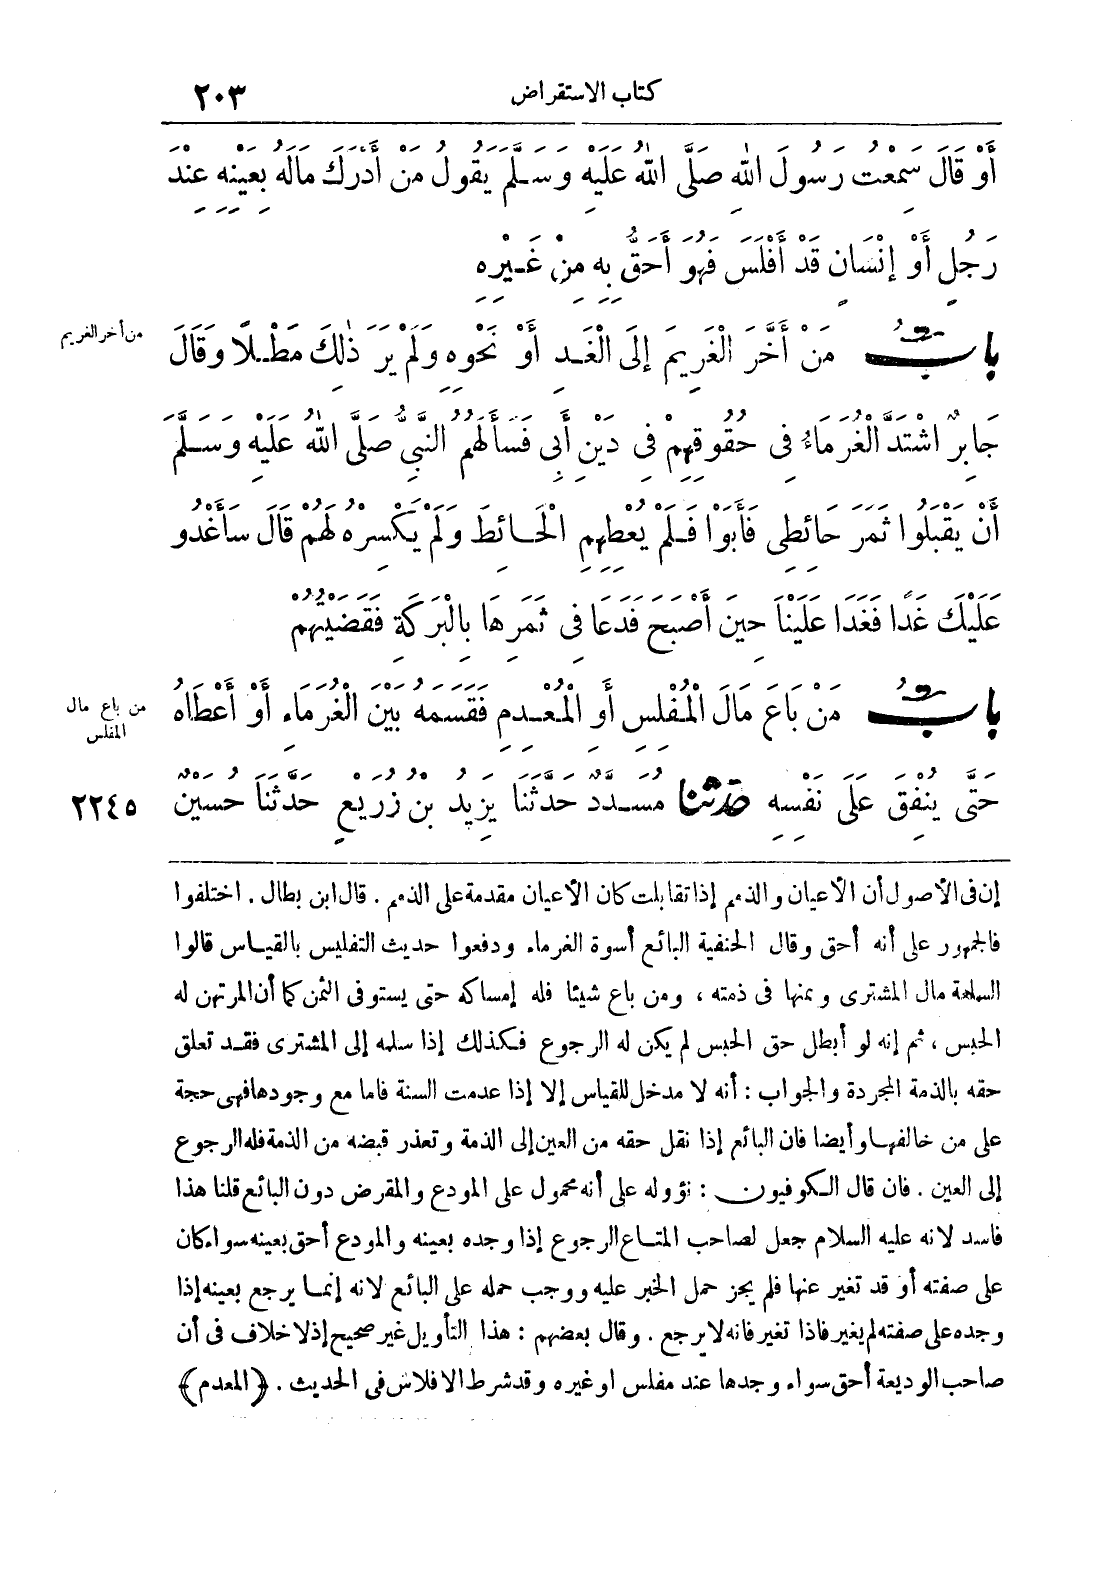 كتاب الاستقراض
٢٠٣
أَوْ قَالَ سَمِعْتُ رَسُولَ اللهِ صَلَّى اللهُ عَلَيْهِ وَسَلَّمَ يَقُولُ مَنْ أَدْرَكَ مَالَهُ بِعَيْنِهِ عِنْدَ
رَجُلٍ أَوْ إِنْسَانٍ قَدْ أَفْلَسَ فَهُوَ أَحَقُّ بِهِ مِنْ غَيْرِهِ
بَابُ مَنْ أَخَّرَ الْغَرِيمَ إِلَى الْغَدِ أَوْ نَحْوِهِ وَلَمْ يَرَ ذٰلِكَ مَطْلًا وَقَالَ
من أخر الغريم
جَابِرٌ اشْتَدَّ الْغُرَمَاءُ فِي حُقُوقِهِمْ فِي دَيْنِ أَبِي فَسَأَلَهُمُ النَّبِيُّ صَلَّى اللهُ عَلَيْهِ وَسَلَّمَ
أَنْ يَقْبَلُوا ثَمَرَ حَائِطِي فَأَبَوْا فَلَمْ يُعْطِهِمِ الْحَائِطَ وَلَمْ يَكْسِرْهُ لَهُمْ قَالَ سَأَغْدُو
عَلَيْكَ غَدًا فَغَدَا عَلَيْنَا حِينَ أَصْبَحَ فَدَعَا فِي ثَمَرِهَا بِالْبَرَكَةِ فَقَضَيْتُهُمْ
بَابُ مَنْ بَاعَ مَالَ الْمُفْلِسِ أَوِ الْمُعْدِمِ فَقَسَمَهُ بَيْنَ الْغُرَمَاءِ أَوْ أَعْطَاهُ
من باع مال
المفلس
حَتَّى يُنْفِقَ عَلَى نَفْسِهِ حدثنا مُسَدَّدٌ حَدَّثَنَا يَزِيدُ بْنُ زُرَيْعٍ حَدَّثَنَا حُسَيْنٌ
٢٢٤٥
إن فى الأصول أن الأعيان والذمم إذا تقابلت كان الأعيان مقدمة على الذمم . قال ابن بطال . اختلفوا
فالجمهور على أنه أحق وقال الحنفية البائع أسوة الغرماء ودفعوا حديث التفليس بالقياس قالوا
السلعة مال المشترى وثمنها فى ذمته ، ومن باع شيئا فله إمساكه حتى يستوفى الثمن كما أن المرتهن له
الحبس ، ثم إنه لو أبطل حق الحبس لم يكن له الرجوع فكذلك إذا سلمه إلى المشترى فقد تعلق
حقه بالذمة المجردة والجواب : أنه لا مدخل للقياس إلا إذا عدمت السنة فاما مع وجودها فهى حجة
على من خالفها وأيضا فان البائع إذا نقل حقه من العين إلى الذمة وتعذر قبضه من الذمة فله الرجوع
إلى العين . فان قال الكوفيون : نؤوله على أنه محمول على المودع والمقرض دون البائع قلنا هذا
فاسد لانه عليه السلام جعل لصاحب المتاع الرجوع إذا وجده بعينه والمودع أحق بعينه سواء كان
على صفته أو قد تغير عنها فلم يجز حمل الخبر عليه ووجب حمله على البائع لانه إنما يرجع بعينه إذا
وجده على صفته لم يغير فاذا تغير فانه لا يرجع . وقال بعضهم : هذا التأويل غير صحيح إذ لا خلاف فى أن
صاحب الوديعة أحق سواء وجدها عند مفلس او غيره وقد شرط الافلاس فى الحديث . ﴿المعدم﴾